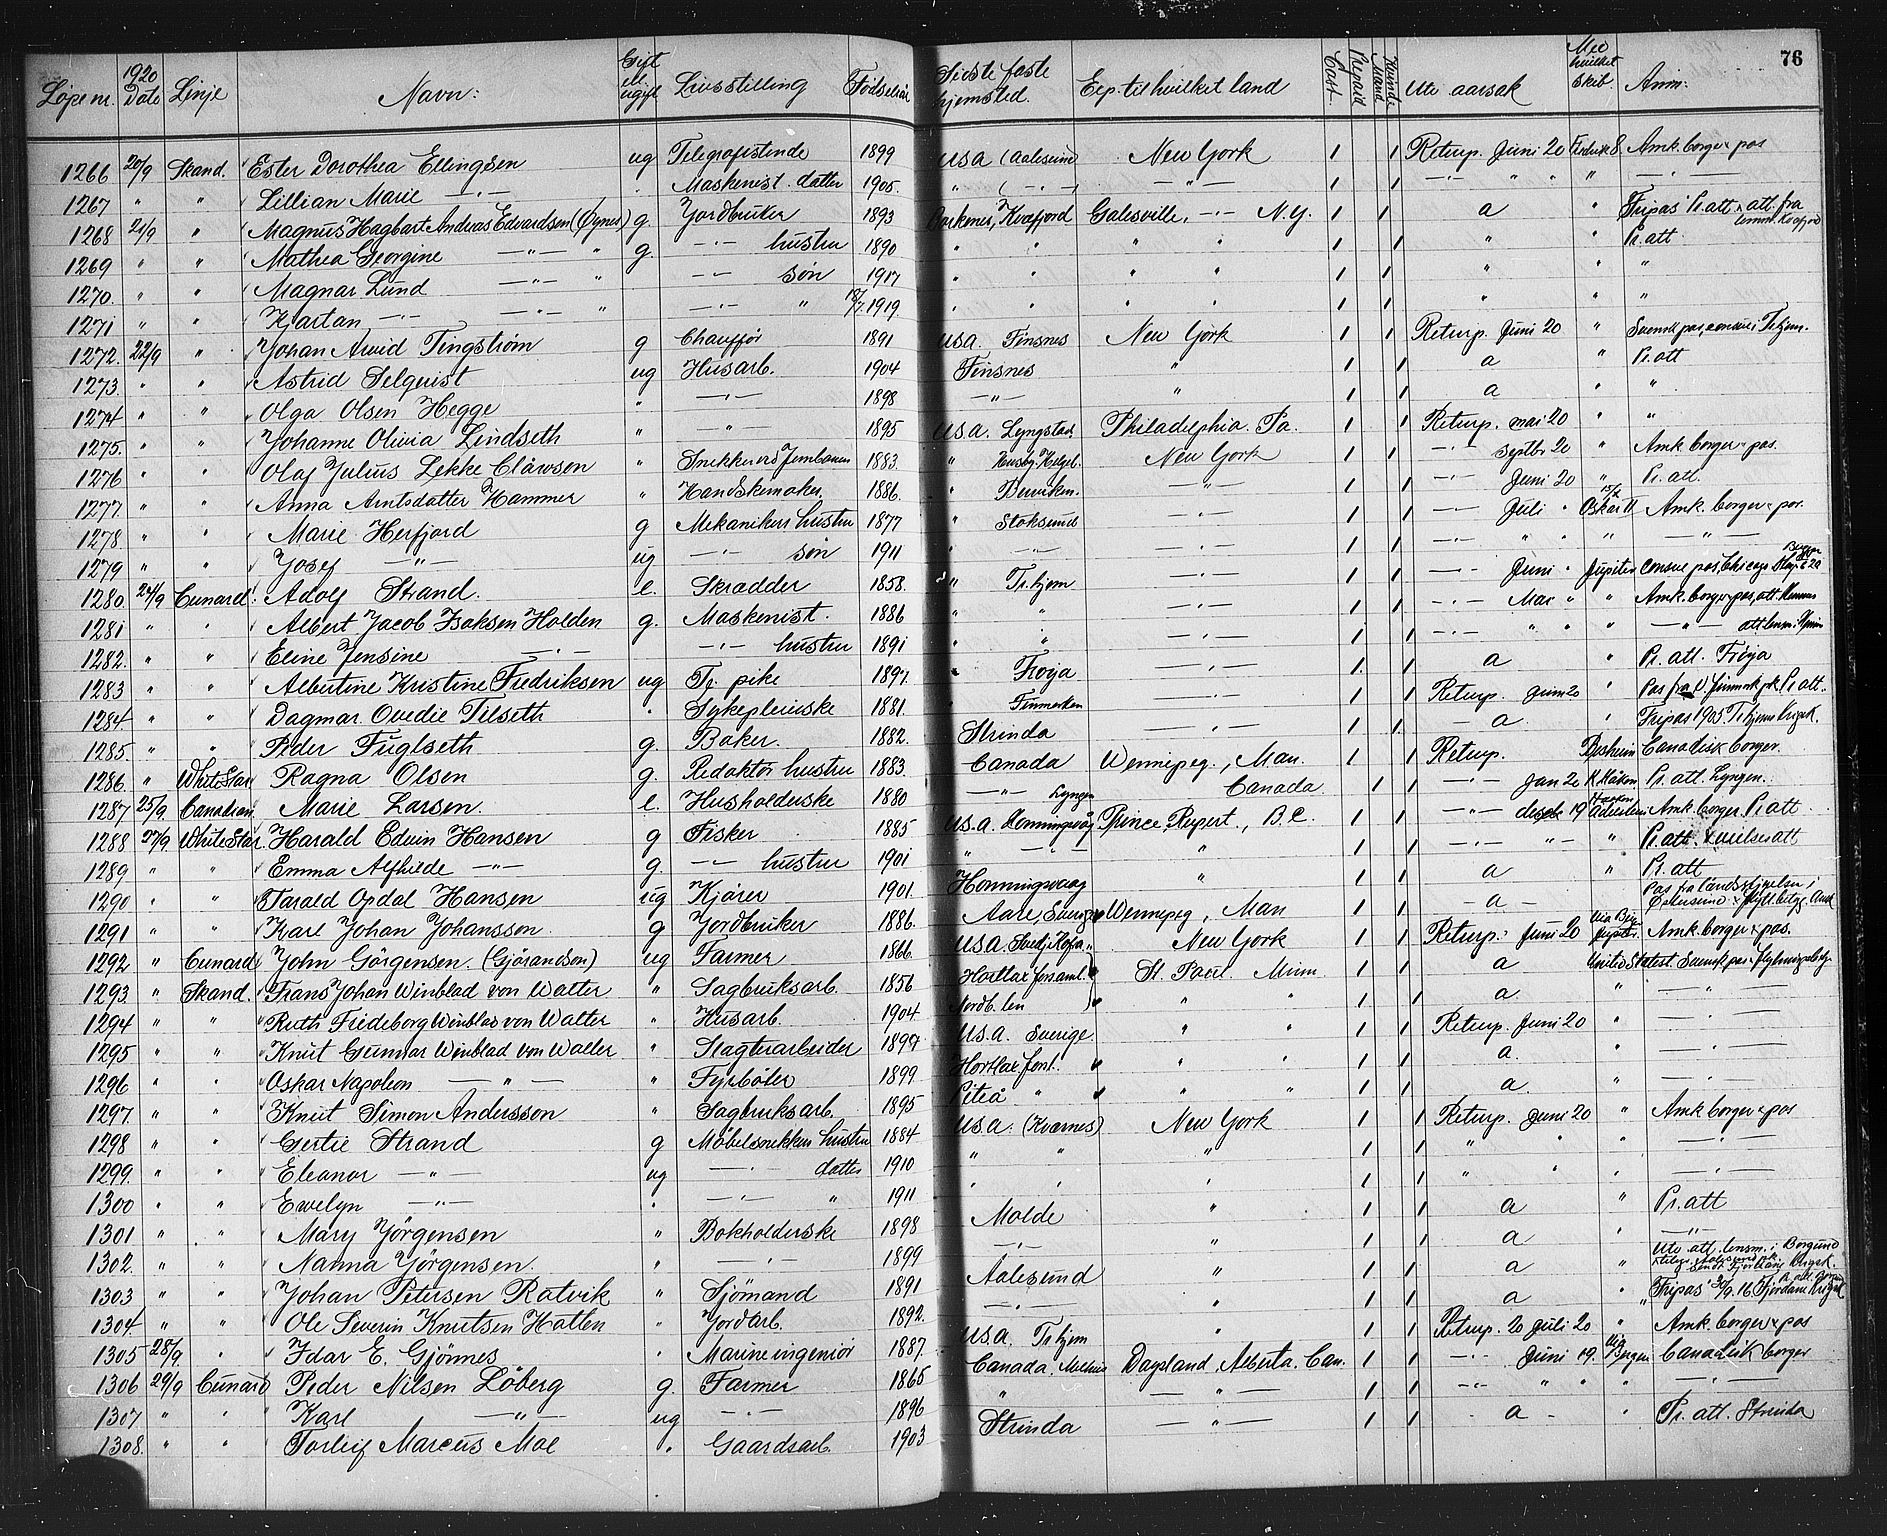 76
Løpe nr. 1920 Date Linje Navn: Gift el. ugift Livsstilling Fødselsår Sidste faste hjemsted. Exp. til hvilket land Kvinde Mand Utv. aarsak Med hvilket Skib. Anm:
1266 20/9 Skand. Ester Dorothea Ellingsen ug Telegrafistinde 1899 USA (Aalesund) New York 1 1 Returp. Juni 20 Fredrik 8 Amk. borger pas
1267 " " Lillian Marie —"— Maskenist. datter 1905. " (—"—) —"— 1 1 —"— " " " —"—
1268 21/9 " Magnus Hagbart Andreas Edvardsen (Øynes) g. Jordbruker 1893 Kvæfjord Galesville, —"— N.Y. 1 1 a " Fripas Pr. att. att. fra lensm. Kvæfjord
1269 " " Mathea Georgine —"— " g. —"— hustru 1890 " " " " 1 1 " " Pr. att.
1270. " " Magnar Lund —"— " —"— søn 1917 " " " " 1 1 " " "
1271 " " Kjartan —"— —"— " —"— " 18/7 1919. " " " " 1 1 " " "
1272. 22/9 " Johan Arvid Tingstrøm g Chauffør 1891 USA. Finsnes New York 1 1 Returp. Juni 20 " Svensk pas, consul i Tr.hjem.
1273. " " Astrid Selquist ug Husarb. 1904 Finsnes " 1 1 a " Pr. att
1274 " " Olga Olsen Hegge " —"— 1898 —"— " 1 1 a " "
1275. " " Johanne Olivia Lindseth " —" 1895 U.S.A. Lyngstad Philadelphia. Pa. 1 1 Returp. mai 20 " "
1276 " " Olaf Julius Lekke Clawson " Snekker ved Jernbanen 1883. " Husby, Helgel. New York 1 1 —"— septbr 20 " Amk. borger pas.
1277 " " Anna Arntsdatter Hammer " Handskemaker 1886. " —"— 1 1 —"— Juni 20 " Pr. att.
1278 " " Marie Herfjord g Mekanikers hustru 1877 " Stoksund —"— 1 1 —"— Juli " 15/7 Oskar II Amk. borger pas.
1279 " " Josef —"— ug —"— søn 1911 " —"— —"— 1 1 —"— " " " —"—
1280. 24/9 Cunard. Adolf Strand. e. Skrædder 1858. " Tr.hjem —"— 1 1 —"— Juni " Jupiter Consul pas, Chicago
1281 " " Albert Jacob Isaksen Holden g. Maskenist. 1886 " " —"— 1 1 —"— Mai " " Amk. borger pas, att.
1282. " " Eline Jensine —"— —"— hustru 1891 " " —"— 1 1 —"— " " " —"— att. lensm.
1283 " " Albertine Kristine Fredriksen ug Tj. pike 1897. " Frøya —"— 1 1 a " Pr. att. Frøya
1284. " " Dagmar Ovedie Tilseth " Sykepleierske 1881. " Finmarken —"— 1 1 Returp. Juni 20 " Pas fra V. Finmark pk Pr att.
1285. " " Peder Fuglseth g. Baker. 1882. Strinda —"— 1 1 — a. " Fripas 1905 Tr.hjems krigsk.
1286. " White Star Ragna Olsen g. Redaktør hustru 1883. Canada Wennipeg, Man. 1 1 Returp. Canadisk borger.
1287 25/9. Canadian Marie Larsen. e. Husholderske 1880 —"— Lyngen Canada 1 1 —"— Jan 20 Pr. att. Lyngen.
1288 27/9 White Star Harald Edvin Hansen g Fisker 1885 U.S.A. Honningsvåg Prince Rupert., B.C. 1 1 —"— decbr 19 Amk. borger Pr. att
1289 " " Emma Alfhilde —"— g. —"— hustru 1901 " —"— " 1 1 —"— " — " Pr. att. & vielsesatt
1290 " " Tarald Opdal Hansen ug Kjører 1901. Honningsvaag " 1 1 a " Pr. att
1291 " " Karl Johan Johansson. g Jordbruker 1886. Aare, Sverige Wennipeg, Man 1 1 — a —
1292 " Cunard John Görgensen. (Gjörandson) ug Farmer 1866. USA. New York 1 1 Returp: Juni 20 Amk. borger & pas.
1293 " Skand. Frans Johan Winblad von Walter " Sagbruksarb. 1856 Hortlax forsaml. St. Paul. Minn 1 1 a United States Svensk pas
1294 " " Ruth Fredeborg Winblad von Walter " Husarb. 1904 Nordb. len " " 1 1 a. " —"—
1295 " " Knut Gunnar Winblad von Walter " Slagteriarbeider 1897 U.S.A. Sverige " " 1 1 Returp. Juni 20 " —"—
1296 " " Oskar Napoleon —"— " Fyrbøter 1899 Hortlax " " 1 1 a. " —"—
1297. " " Knut Simon Andersson " Sagbruksarb. 1895 Piteå " " " 1 1 a " —"—
1298 " " Gertie Strand g Møbelsnekkers hustru 1884 USA. (Kvernes) New York 1 1 Returp. Juni 20 " Amk borger & pas
1299. " " Eleanor —"— ug —"— datter 1910 " " " 1 1 " " " —"—
1300 " " Evelyn —"— " —"— " 1911 " " " 1 1 " " " —"—
1301 " " Mary Jørgensen " Bokholderske 1898 Molde " 1 1 a " Pr. att
1302. " " Nanna Jörgensen. " —"— 1899 —"— " 1 1 a —"—
1303 " " Johan Petersen Ratvik " Sjømand 1891 Aalesund " 1 1 a " Utv. att. lensm. i Borgund
1304. " " Ole Severin Knutsen Hatlen " Jordarb. 1892. —"— " 1 1 a " Fripas 30/9. 16.
1305 28/9. " Idar E. Gjønnes " Marineingeniør 1887. U.S.A. Tr.hjem " 1 1 Returp. 20 Juli 20 " Amk borger & pas
1306 29/9 Cunard Peder Nilsen Løberg g. Farmer 1865 Canada, Daysland Alberta. Can. 1 1 —"— Juni 19. via Bergen Canadisk borger
1307 " " Karl —"— ug —"— 1896 " —"— 1 1 —"— " " " —"—
1308. " " Torleif Marcus Moe " Gaardsarb. 1903 Strinda —"— 1 1 - a - " Pr. att. Strinda